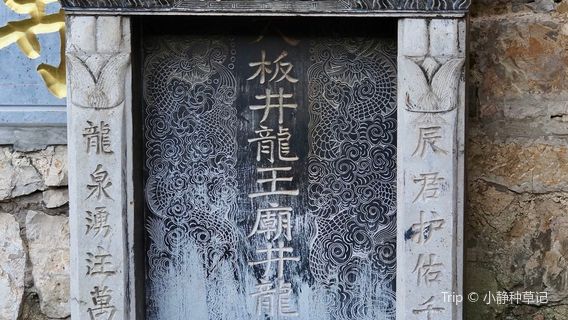 辰君护佑千
板井龍王廟井龍
龍泉湧注萬
Trip © 小静种草记